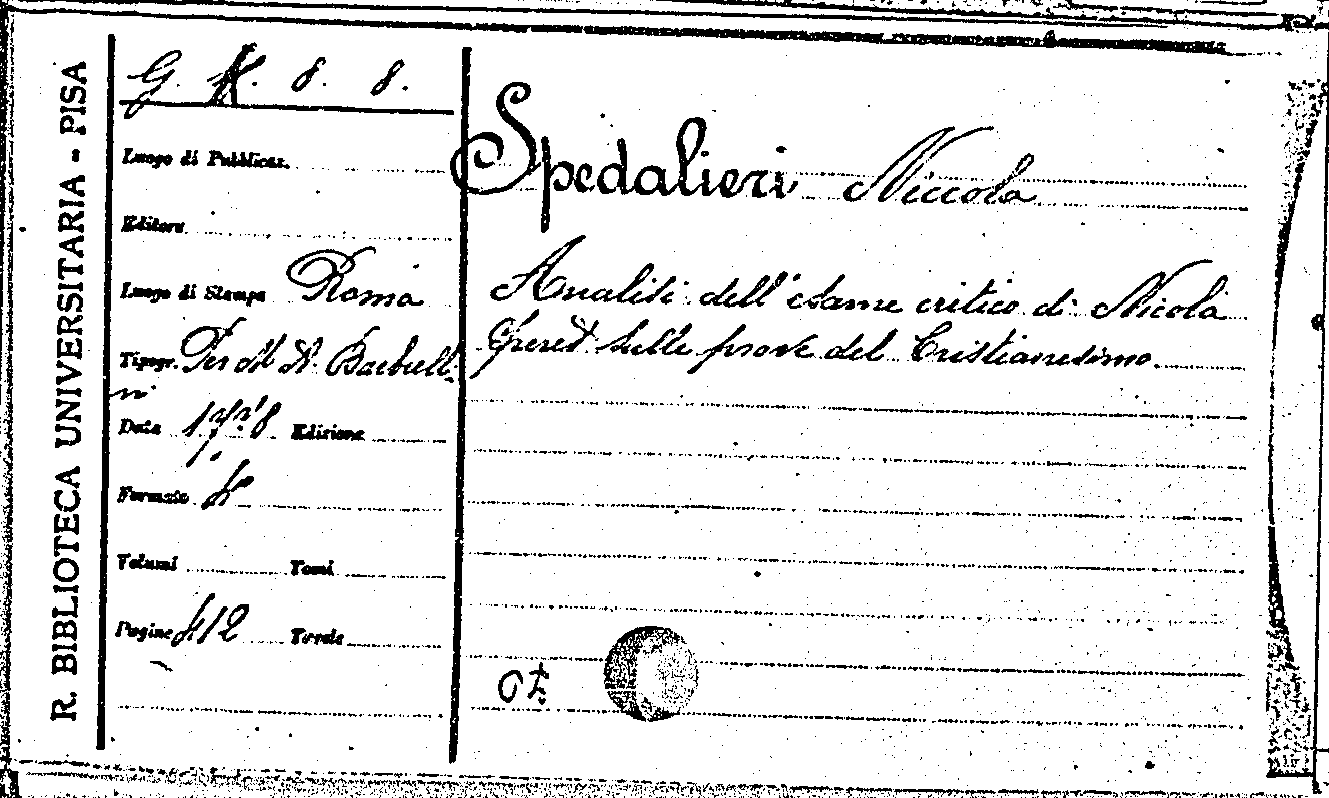 R. BIBLIOTECA UNIVERSITARIA - PISA
G. K. 8. 8.
Luogo di Pubblicaz.
Editore
Luogo di Stampa Roma
Tipogr. Per M. A. Barbiell
ni
Data 1778 Edizione
Formato 4º
Volumi Tomi
Pagine 412 Tavole
Spedalieri Niccola
Analisi dell'esame critico di Nicola
Freret sulle prove del Cristianesimo.